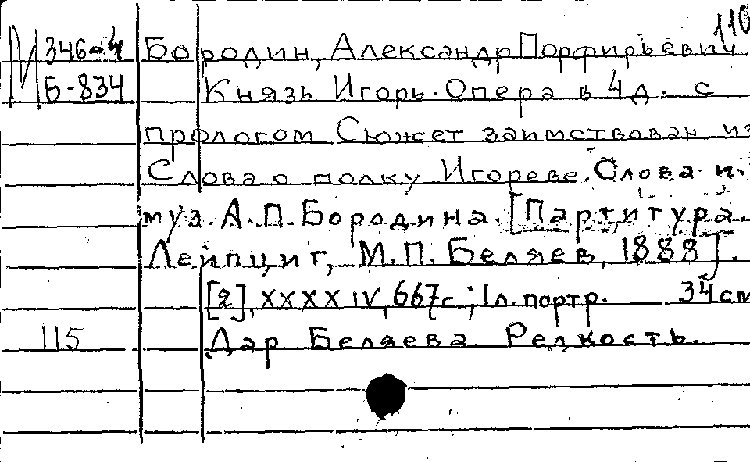 110
М 346-4 Бородин, Александр Порфирьевич
Б-834 Князь Игорь. Опера в 4 д. с
прологом Сюжет заимствован из
Слова о полку Игореве. Слова и
муз. А.П. Бородина. [Партитура.
Лейпциг, М.П. Беляев, 1888].
[2], XXXXIV, 667с.; 1л. портр. 34 см
115 Дар Беляева Редкость.